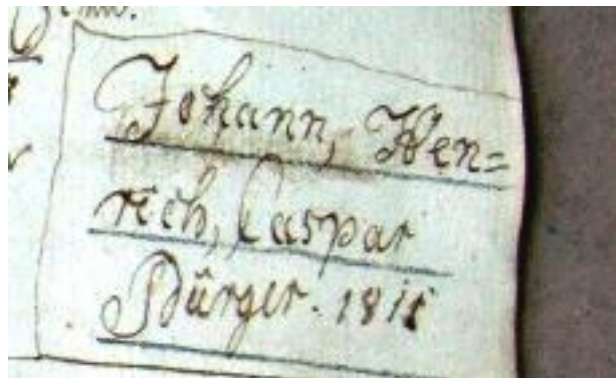 Johann, Hen=
rich, Caspar
Bürger. 1815